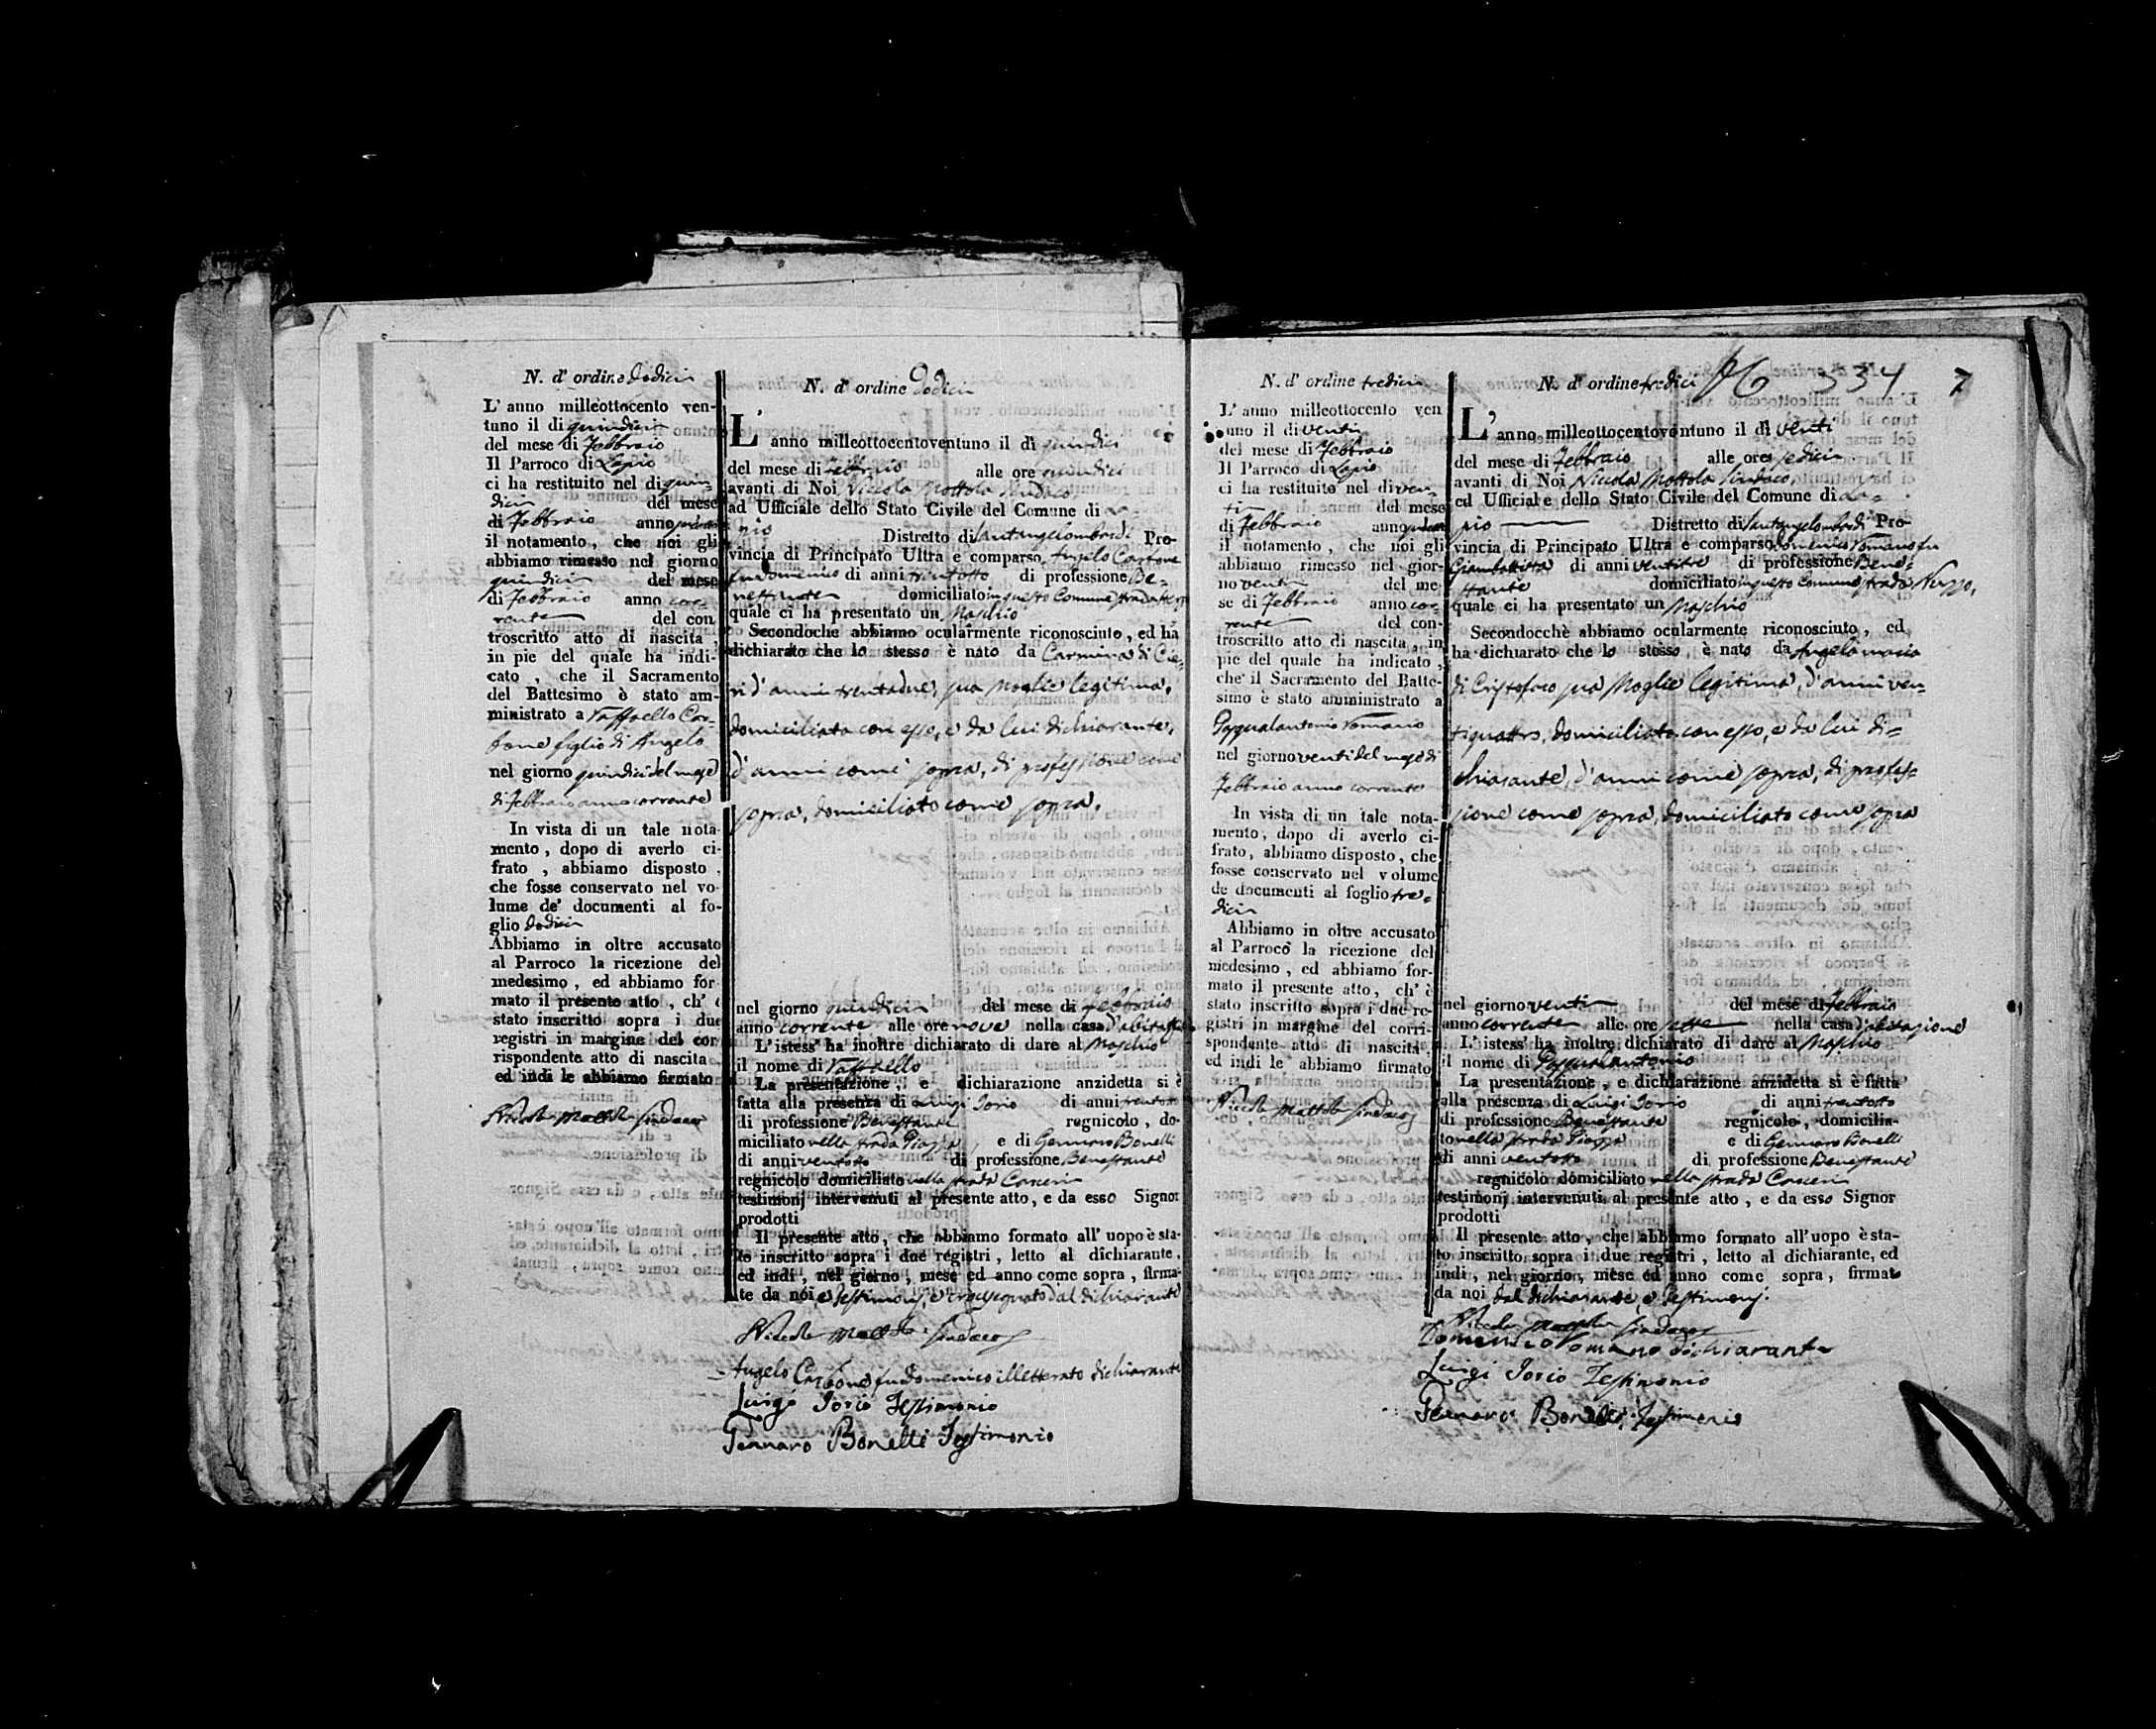 N. d' ordine dodici
L' anno milleottocento ven-
tuno il di quindici
del mese di Febbraio
Il Parroco di Lapio
ci ha restituito nel di quin-
dici del mese
di Febbraio anno
il notamento, che noi gli
abbiamo rimesso nel giorno
quindici del mese
di Febbraio anno cor-
rente del con
troscritto atto di nascita,
in pie del quale ha indi-
cato, che il Sacramento
del Battesimo è stato am-
ministrato a Raffaello Car-
bone figlio di Angelo
nel giorno quindici del mese
di Febbraio anno corrente
In vista di un tale nota-
mento, dopo di averlo ci-
frato, abbiamo disposto,
che fosse conservato nel vo-
lume de' documenti al fo-
glio dodici
Abbiamo in oltre accusato
al Parroco la ricezione del
medesimo, ed abbiamo for
mato il presente atto, ch' è
stato inscritto sopra i due
registri in margine del cor
rispondente atto di nascita
ed indi le abbiamo firmato
Niccola Mottola Sindaco
N. d' ordine dodici
L' anno milleottocentoventuno il di quindici
del mese di Febbraio alle ore quindici
avanti di Noi Niccola Mottola Sindaco
ad Uffiziale dello Stato Civile del Comune di La-
pio Distretto di Santangelombardi Pro-
vincia di Principato Ultra è comparso Angelo Carbone
fu Domenico di anni trentotto di professione Be-
nestante domiciliato in questo Comune strada
quale ci ha presentato un Maschio
Secondoche abbiamo ocularmente riconosciuto, ed ha
dichiarato che lo stesso è nato da Carmina di Cie-
ri d'anni trentadue, sua Moglie legitima,
domiciliata con esso, e da lui dichiarante,
d'anni come sopra, di professione come
sopra, domiciliato come sopra.
nel giorno quindici del mese di Febbraio
anno corrente alle ore nove nella casa d'abitazione
L'istess' ha inoltre dichiarato di dare al Maschio
il nome di Raffaello
La presentazione, e dichiarazione anzidetta si è
fatta alla presenza di Luigi Iorio di anni trentotto
di professione Benestante regnicolo, do-
miciliato nella strada Piazza, e di Gennaro Bonelli
di anni ventotto di professione Benestante
regnicolo domiciliato nella strada Carceri
testimonj intervenuti al presente atto, e da esso Signor
prodotti
Il presente atto, che abbiamo formato all' uopo è sta-
to inscritto sopra i due registri, letto al dichiarante,
ed indi, nel giorno, mese ed anno come sopra, firma-
te da noi e testimonj, e crocesegnato dal dichiarante
Niccola Mottola Sindaco
Angelo Carbone fu Domenico illetterato dichiarante
Luigi Iorio Testimonio
Gennaro Bonelli Testimonio
N. d' ordine tredici
L' anno milleottocento ven
uno il di venti
del mese di Febbraio
Il Parroco di Lapio
ci ha restituito nel di ven-
ti del mese
di Febbraio anno
il notamento, che noi gli
abbiamo rimesso nel gior-
no venti del me
se di Febbraio anno cor-
rente del con-
troscritto atto di nascita, in
pie del quale ha indicato,
che il Sacramento del Batte-
simo è stato amministrato a
Pasqualantonio Romano
nel giorno venti del mese di
Febbraio anno corrente
In vista di un tale nota-
mento, dopo di averlo ci-
frato, abbiamo disposto, che
fosse conservato nel volume
de documenti al foglio tre-
dici
Abbiamo in oltre accusato
al Parroco la ricezione del
medesimo, ed abbiamo for-
mato il presente atto, ch' è
stato inscritto sopra i due re-
gistri in margine del corri-
spondente atto di nascita,
ed indi le abbiamo firmato
Niccola Mottola Sindaco
N. d' ordine tredici 334 7
L' anno milleottocentoventuno il di venti
del mese di Febbraio alle ore sedici
avanti di Noi Niccola Mottola Sindaco,
ed Ufficiale dello Stato Civile del Comune di La-
pio Distretto di Santangelombardi Pro-
vincia di Principato Ultra è comparso Domenico Romano fu
Giambattista di anni ventitre di professione Bene-
stante domiciliato in questo Comune strada Nuzzo,
quale ci ha presentato un Maschio
Secondocchè abbiamo ocularmente riconosciuto, ed
ha dichiarato che lo stesso è nato da Angela maria
di Cristofaro sua Moglie legitima, d'anni ven-
tiquattro, domiciliata con esso, e da lui di-
chiarante, d'anni come sopra, di profes-
sione come sopra, domiciliato come sopra
nel giorno venti del mese di Febbraio
anno corrente alle ore sette nella casa d'abitazione
L' istess' ha inoltre dichiarato di dare al Maschio
il nome di Pasqualantonio
La presentazione, e dichiarazione anzidetta si è fatta
alla presenza di Luigi Iorio di anni trentotto
di professione Benestante regnicolo, domicilia-
to nella strada Piazza e di Gennaro Bonelli
di anni ventotto di professione Benestante
regnicolo domiciliato nella strada Carceri
testimonj intervenuti al presente atto, e da esso Signor
prodotti
Il presente atto, che abbiamo formato all'uopo è sta-
to inscritto sopra i due registri, letto al dichiarante, ed
indi, nel giorno, mese ed anno come sopra, firmato
da noi dal dichiarante, e Testimonj.
Niccola Mottola Sindaco
Domenico Romano dichiarante
Luigi Iorio Testimonio
Gennaro Bonelli Testimonio